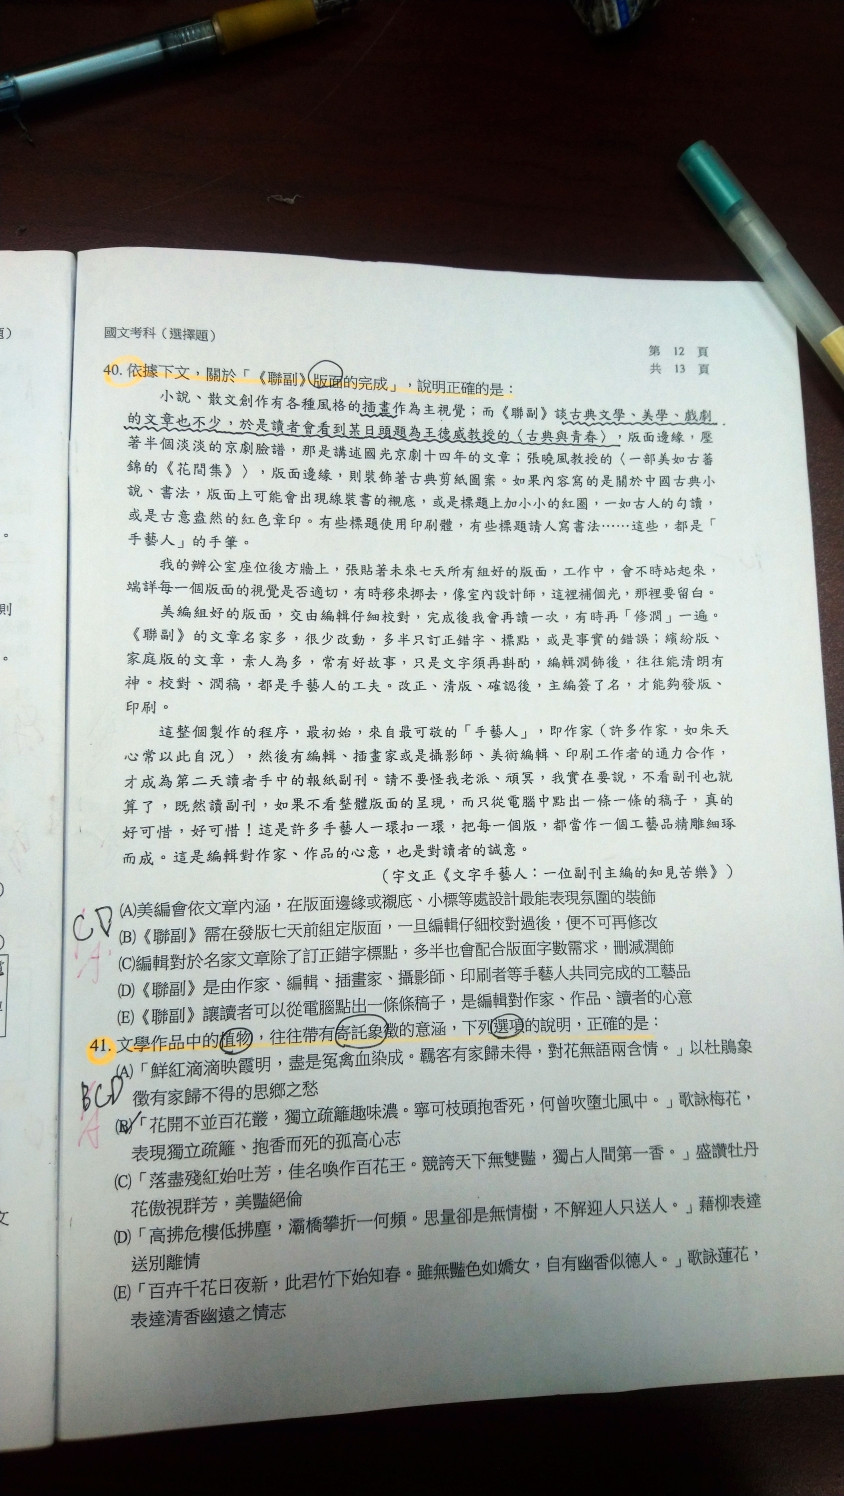 國文考科（選擇題）
第 12 頁
共 13 頁
40. 依據下文，關於「《聯副》版面的完成」，說明正確的是：
小說、散文創作有各種風格的插畫作為主視覺；而《聯副》談古典文學、美學、戲劇
的文章也不少，於是讀者會看到某日頭題為王德威教授的〈古典與青春〉，版面邊緣，壓
著半個淡淡的京劇臉譜，那是講述國光京劇十四年的文章；張曉風教授的〈一部美如古蕃
錦的《花間集》〉，版面邊緣，則裝飾著古典剪紙圖案。如果內容寫的是關於中國古典小
說、書法，版面上可能會出現線裝書的襯底，或是標題上加小小的紅圈，一如古人的句讀，
或是古意盎然的紅色章印。有些標題使用印刷體，有些標題請人寫書法……這些，都是「
手藝人」的手筆。
我的辦公室座位後方牆上，張貼著未來七天所有組好的版面，工作中，會不時站起來，
端詳每一個版面的視覺是否適切，有時移來挪去，像室內設計師，這裡補個光，那裡要留白。
美編組好的版面，交由編輯仔細校對，完成後我會再讀一次，有時再「修潤」一遍。
《聯副》的文章名家多，很少改動，多半只訂正錯字、標點，或是事實的錯誤；繽紛版、
家庭版的文章，素人為多，常有好故事，只是文字須再斟酌，編輯潤飾後，往往能清朗有
神。校對、潤稿，都是手藝人的工夫。改正、清版、確認後，主編簽了名，才能夠發版、
印刷。
這整個製作的程序，最初始，來自最可敬的「手藝人」，即作家（許多作家，如朱天
心常以此自況），然後有編輯、插畫家或是攝影師、美術編輯、印刷工作者的通力合作，
才成為第二天讀者手中的報紙副刊。請不要怪我老派、頑冥，我實在要說，不看副刊也就
算了，既然讀副刊，如果不看整體版面的呈現，而只從電腦中點出一條一條的稿子，真的
好可惜，好可惜！這是許多手藝人一環扣一環，把每一個版，都當作一個工藝品精雕細琢
而成。這是編輯對作家、作品的心意，也是對讀者的誠意。
（宇文正《文字手藝人：一位副刊主編的知見苦樂》）
CD
A
(A)美編會依文章內涵，在版面邊緣或襯底、小標等處設計最能表現氛圍的裝飾
(B)《聯副》需在發版七天前組定版面，一旦編輯仔細校對過後，便不可再修改
(C)編輯對於名家文章除了訂正錯字標點，多半也會配合版面字數需求，刪減潤飾
(D)《聯副》是由作家、編輯、插畫家、攝影師、印刷者等手藝人共同完成的工藝品
(E)《聯副》讓讀者可以從電腦點出一條條稿子，是編輯對作家、作品、讀者的心意
41. 文學作品中的植物，往往帶有寄託象徵的意涵，下列選項的說明，正確的是：
BCD
A
(A)「鮮紅滴滴映霞明，盡是冤禽血染成。羈客有家歸未得，對花無語兩含情。」以杜鵑象
徵有家歸不得的思鄉之愁
(B)「花開不並百花叢，獨立疏籬趣味濃。寧可枝頭抱香死，何曾吹墮北風中。」歌詠梅花，
表現獨立疏籬、抱香而死的孤高心志
(C)「落盡殘紅始吐芳，佳名喚作百花王。競誇天下無雙豔，獨占人間第一香。」盛讚牡丹
花傲視群芳，美豔絕倫
(D)「高拂危樓低拂塵，灞橋攀折一何頻。思量卻是無情樹，不解迎人只送人。」藉柳表達
送別離情
(E)「百卉千花日夜新，此君竹下始知春。雖無豔色如嬌女，自有幽香似德人。」歌詠蓮花，
表達清香幽遠之情志